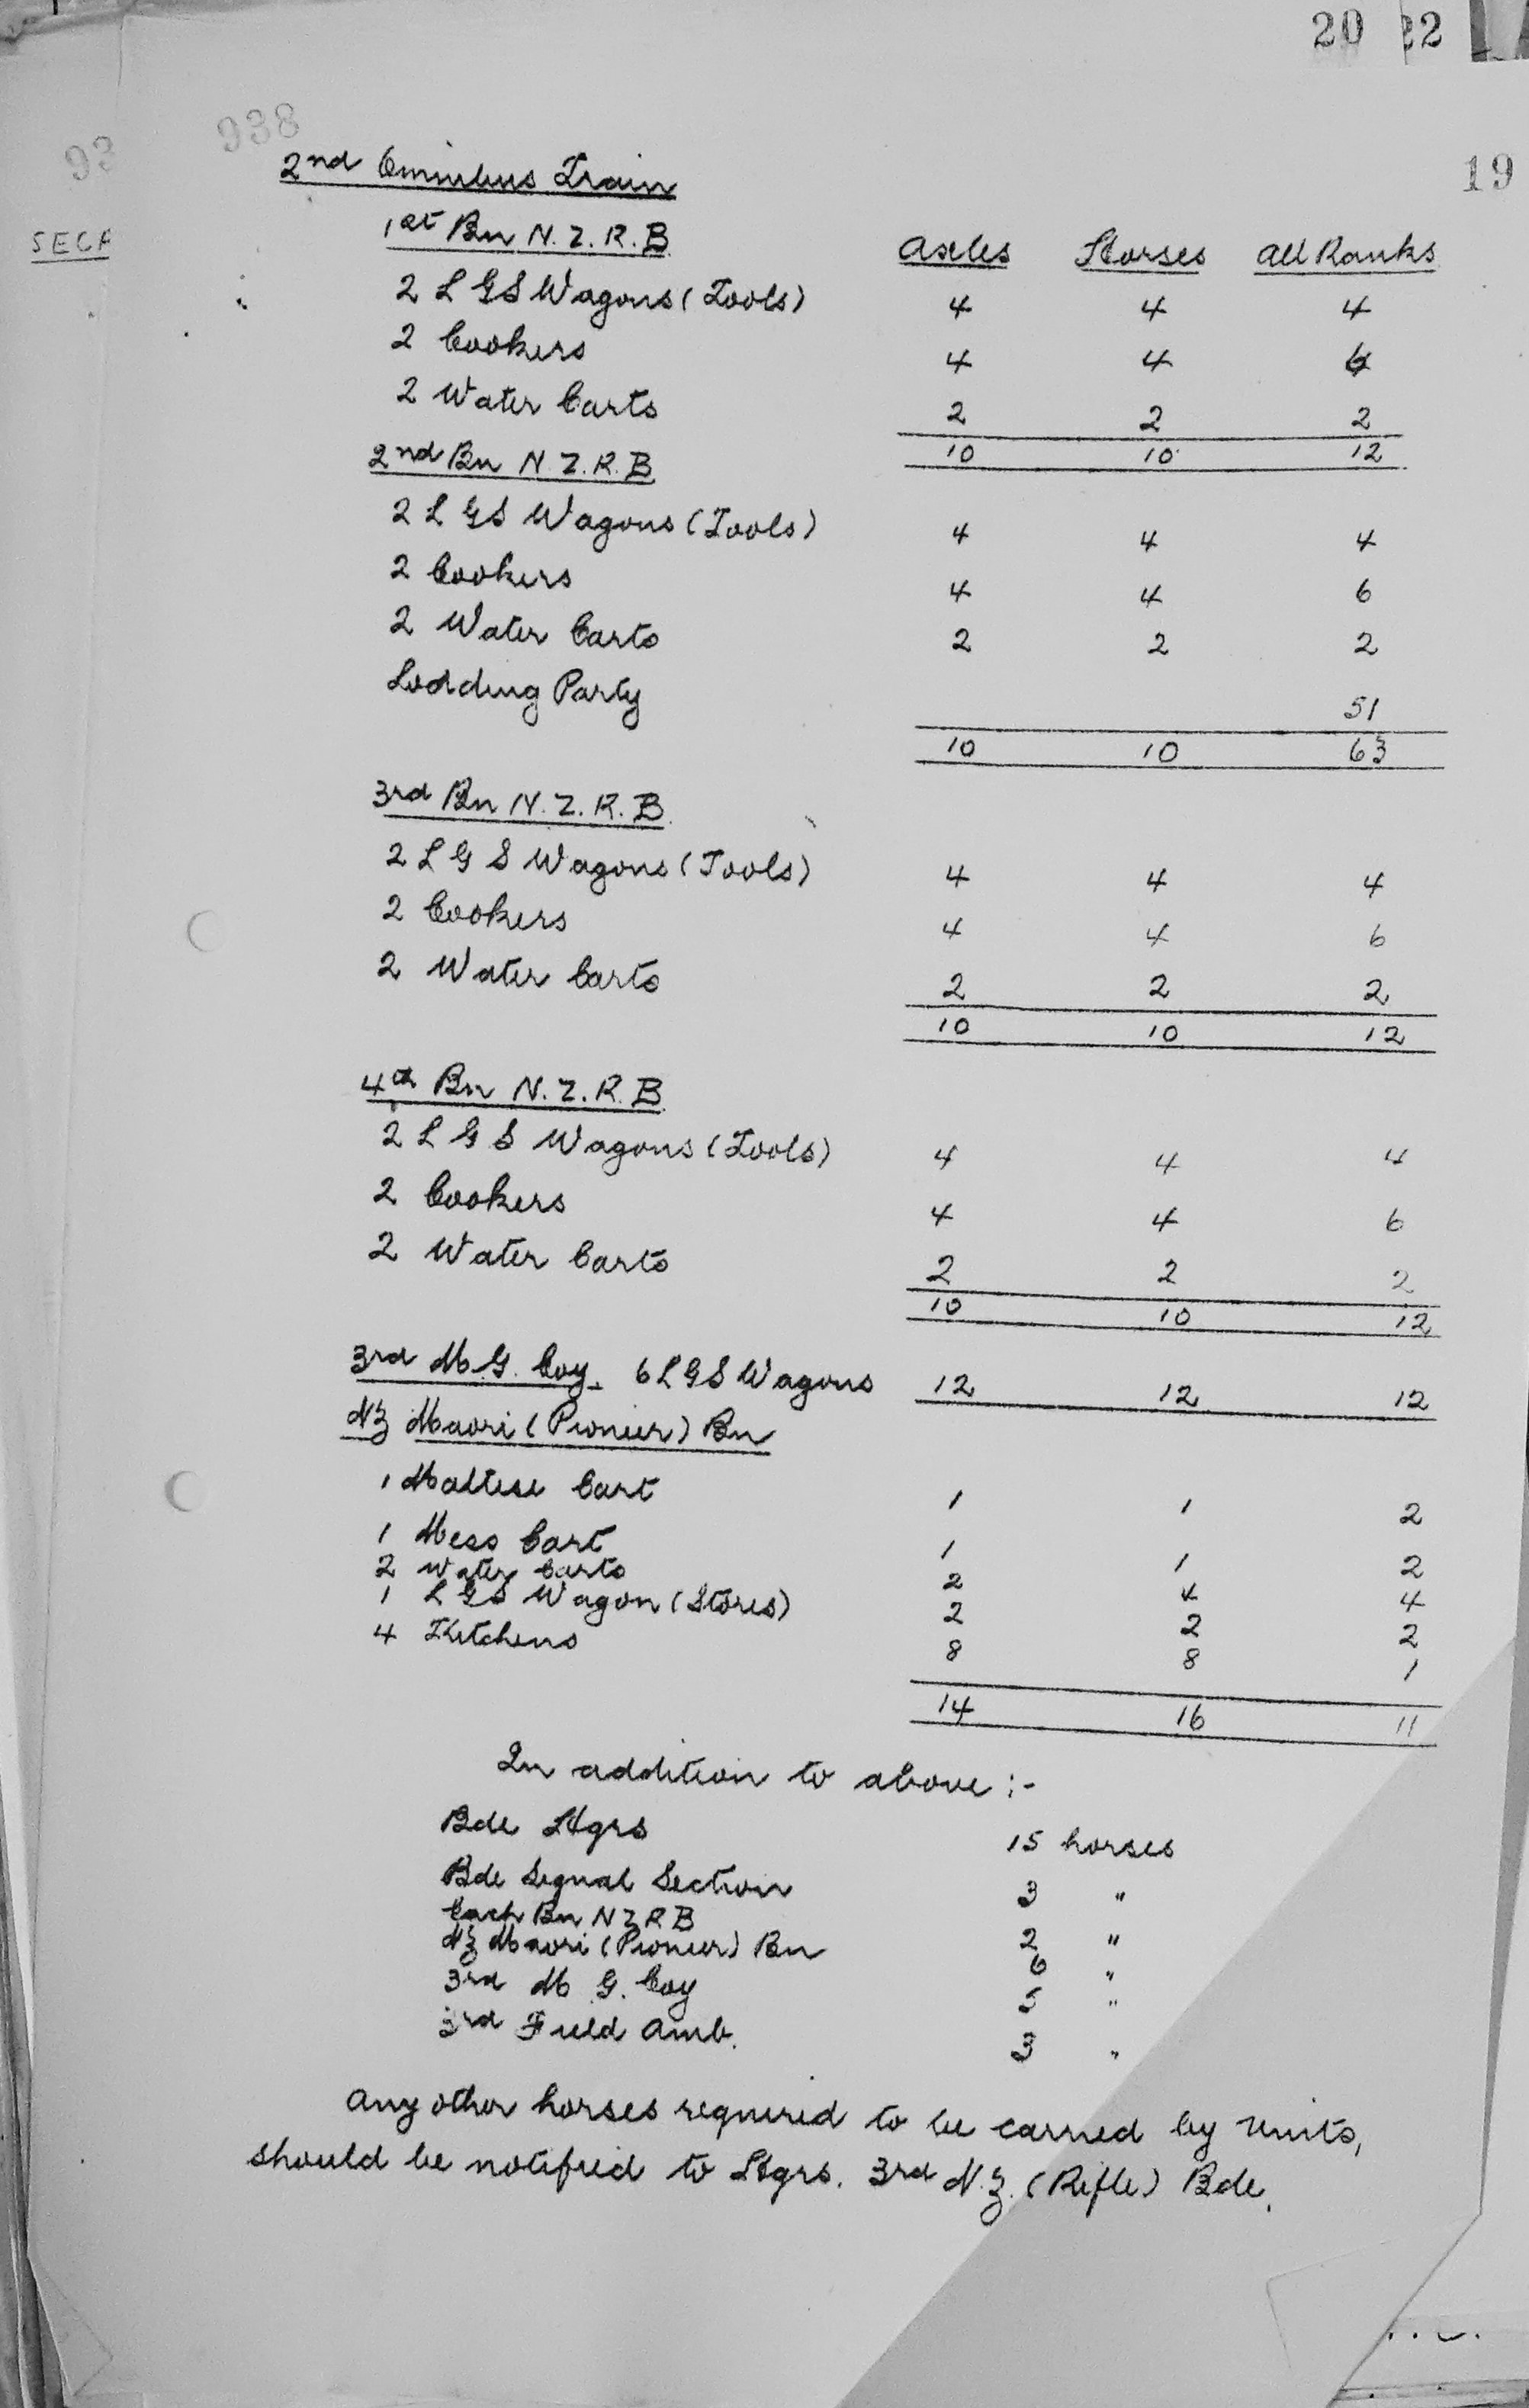 20 22
938
93
19
SECR
2nd Omnibus Train
1st Bn N.Z.R.B
Axles Horses All Ranks
2 L G S Wagons (Tools) 4 4 4
2 Cookers 4 4 6
2 Water Carts 2 2 2
10 10 12
2nd Bn N.Z.R.B
2 L G S Wagons (Tools) 4 4 4
2 Cookers 4 4 6
2 Water Carts 2 2 2
Loading Party 51
10 10 63
3rd Bn N.Z.R.B.
2 L G S Wagons (Tools) 4 4 4
2 Cookers 4 4 6
2 Water Carts 2 2 2
10 10 12
4th Bn N.Z.R.B.
2 L G S Wagons (Tools) 4 4 4
2 Cookers 4 4 6
2 Water Carts 2 2 2
10 10 12
3rd M.G. Coy. 6 L G S Wagons 12 12 12
NZ Maori (Pioneer) Bn
1 Maltese Cart 1 1 2
1 Mess Cart 1 1 2
2 Water Carts 2 4 4
1 L G S Wagon (Stores) 2 2 2
4 Kitchens 8 8 1
14 16 11
In addition to above :-
Bde Hqrs 15 horses
Bde Signal Section 3 "
Each Bn N Z R B 2 "
NZ Maori (Pioneer) Bn 6 "
3rd M.G. Coy 5 "
3rd Field Amb. 3 "
Any other horses required to be carried by units,
should be notified to Hqrs. 3rd N.Z. (Rifle) Bde.